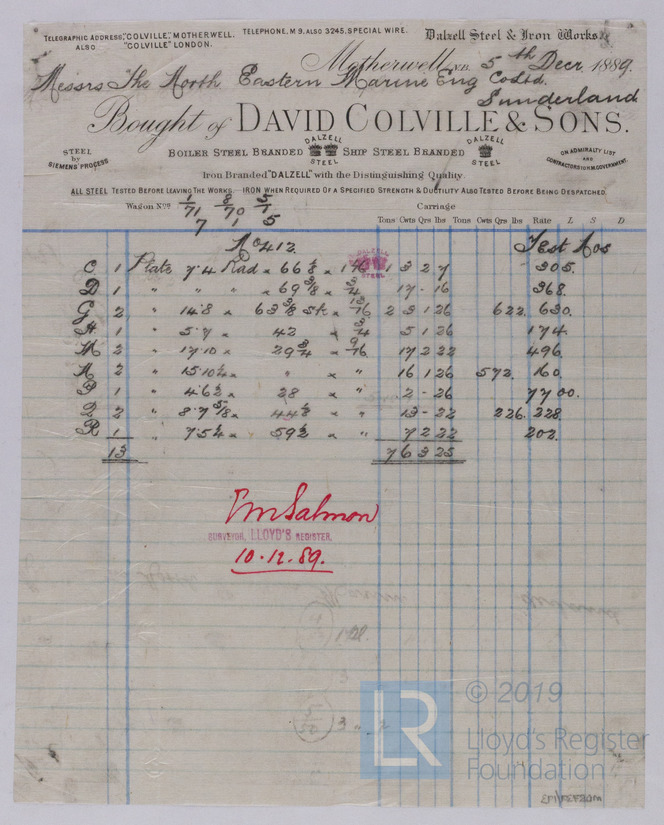 TELEGRAPHIC ADDRESS, "COLVILLE", MOTHERWELL.
ALSO "COLVILLE" LONDON.
TELEPHONE, M 9. ALSO 3245. SPECIAL WIRE.
Dalzell Steel & Iron Works.
Motherwell, N.B. 5th Decr 1889.
Messrs The North Eastern Marine Eng Co Ltd.
Sunderland
Bought of DAVID COLVILLE & SONS.
STEEL by SIEMENS' PROCESS
BOILER STEEL BRANDED DALZELL STEEL SHIP STEEL BRANDED DALZELL STEEL
ON ADMIRALTY LIST AND CONTRACTORS FOR H.M. GOVERNMENT.
Iron Branded "DALZELL" with the Distinguishing Quality.
ALL STEEL TESTED BEFORE LEAVING THE WORKS. IRON WHEN REQUIRED OF A SPECIFIED STRENGTH & DUCTILITY ALSO TESTED BEFORE BEING DESPATCHED.
Wagon Nos 1/71 8/70 5/1
7 1 5
Carriage
Tons Cwts Qrs lbs Tons Cwts Qrs lbs Rate L S D
No 412
Test Nos
C 1 Plate 7.4 Rad × 66 1/8 × 1 3 2 7 305.
D 1 " " " × 69 3/8 × 3/4 17 - 16 368.
G 2 " 14.8 × 63 3/8 × 13/16 2 3 1 26 622. 630.
H 1 " 5.7 × 42 × 3/4 5 1 26 174.
M 2 " 17.10 × 29 3/4 × 9/16 17 2 22 496.
N 2 " 15.10 1/4 × " × " 16 1 26 572. 160.
P 1 " 4.6 1/2 × 28 × " 2 - 26 7700.
Q 2 " 8.7 5/8 × 44 1/8 × " 13 - 22 226. 228.
R 1 " 7.5 1/4 × 59 1/2 × " 7 2 22 202.
13 7 6 3 25
Salmon
SURVEYOR, LLOYD'S REGISTER,
10.12.89.
LR © 2019
Lloyd's Register
Foundation